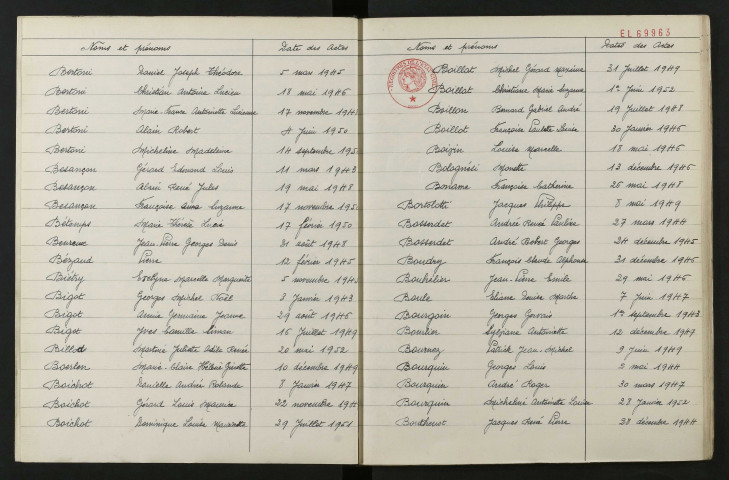 Noms et prénoms Date des Actes
Bertoni Daniel Joseph Théodore 5 mai 1945
Bertoni Christian Antoine Lucien 18 mai 1946
Bertoni Marie France Antoinette 17 novembre
Bertoni Alain Robert 4 Juin 1950
Bertoni Micheline Madeleine 14 septembre
Besançon Gérard Edouard Louis 11 mars 1943
Besançon Alain René Jules 19 mai 1948
Besançon Françoise Suzanne 17 novembre
Bétemps Marie Thérèse 17 février 1950
Beureux Jean Pierre Georges Denis 31 août 1948
Bézaud Pierre 12 février 1945
Biétry Evelyne Marcelle Marguerite 5 novembre
Bigot Georges Michel Noël 2 Janvier 1943
Bigot Annie Germaine Jeanne 29 août 1946
Bigot Yves Camille 16 Juillet 1949
Billod Martine Juliette Renée 20 mai 1952
Boerlen Marie-Claire Hélène 10 décembre 1949
Boichot Danielle André Rolande 8 Janvier 1947
Boichot Gérard Louis Maurice 22 novembre
Boichot Dominique Louise 29 Juillet 1951
EL 69963
Noms et prénoms Dates des Actes
Boillat Michel Gérard Maxime 31 Juillet 1949
Boillat Christiane Marie Suzanne 1er Juin 1952
Boillon Bernard Gabriel André 19 Juillet 1948
Boillot François Paulette 30 Janvier 1946
Boizin Louise Marcelle 18 mai 1946
Bolognési Monette 13 décembre 1946
Boname Françoise Catherine 26 mai 1948
Bortolotti Jacques Philippe 8 mai 1949
Bosserdet Andrée Renée Pauline 27 mars 1944
Bosserdet André Robert Georges 24 décembre 1945
Boudry François Claude Alphonse 31 décembre 1946
Bouhélier Jean-Pierre Emile 29 mai 1946
Boule Eliane Denise Marthe 7 Juin 1947
Bourgoin Georges Gervais 1er septembre 1943
Bournier Sylviane Antoinette 12 décembre 1947
Bournez Patrick Jean-Michel 9 Juin 1949
Bourquin Georges Louis 2 mai 1944
Bourquin André Roger 30 mars 1947
Bourquin Micheline Antoinette 28 Janvier 1952
Bouthenot Jacques René Pierre 28 décembre 1944